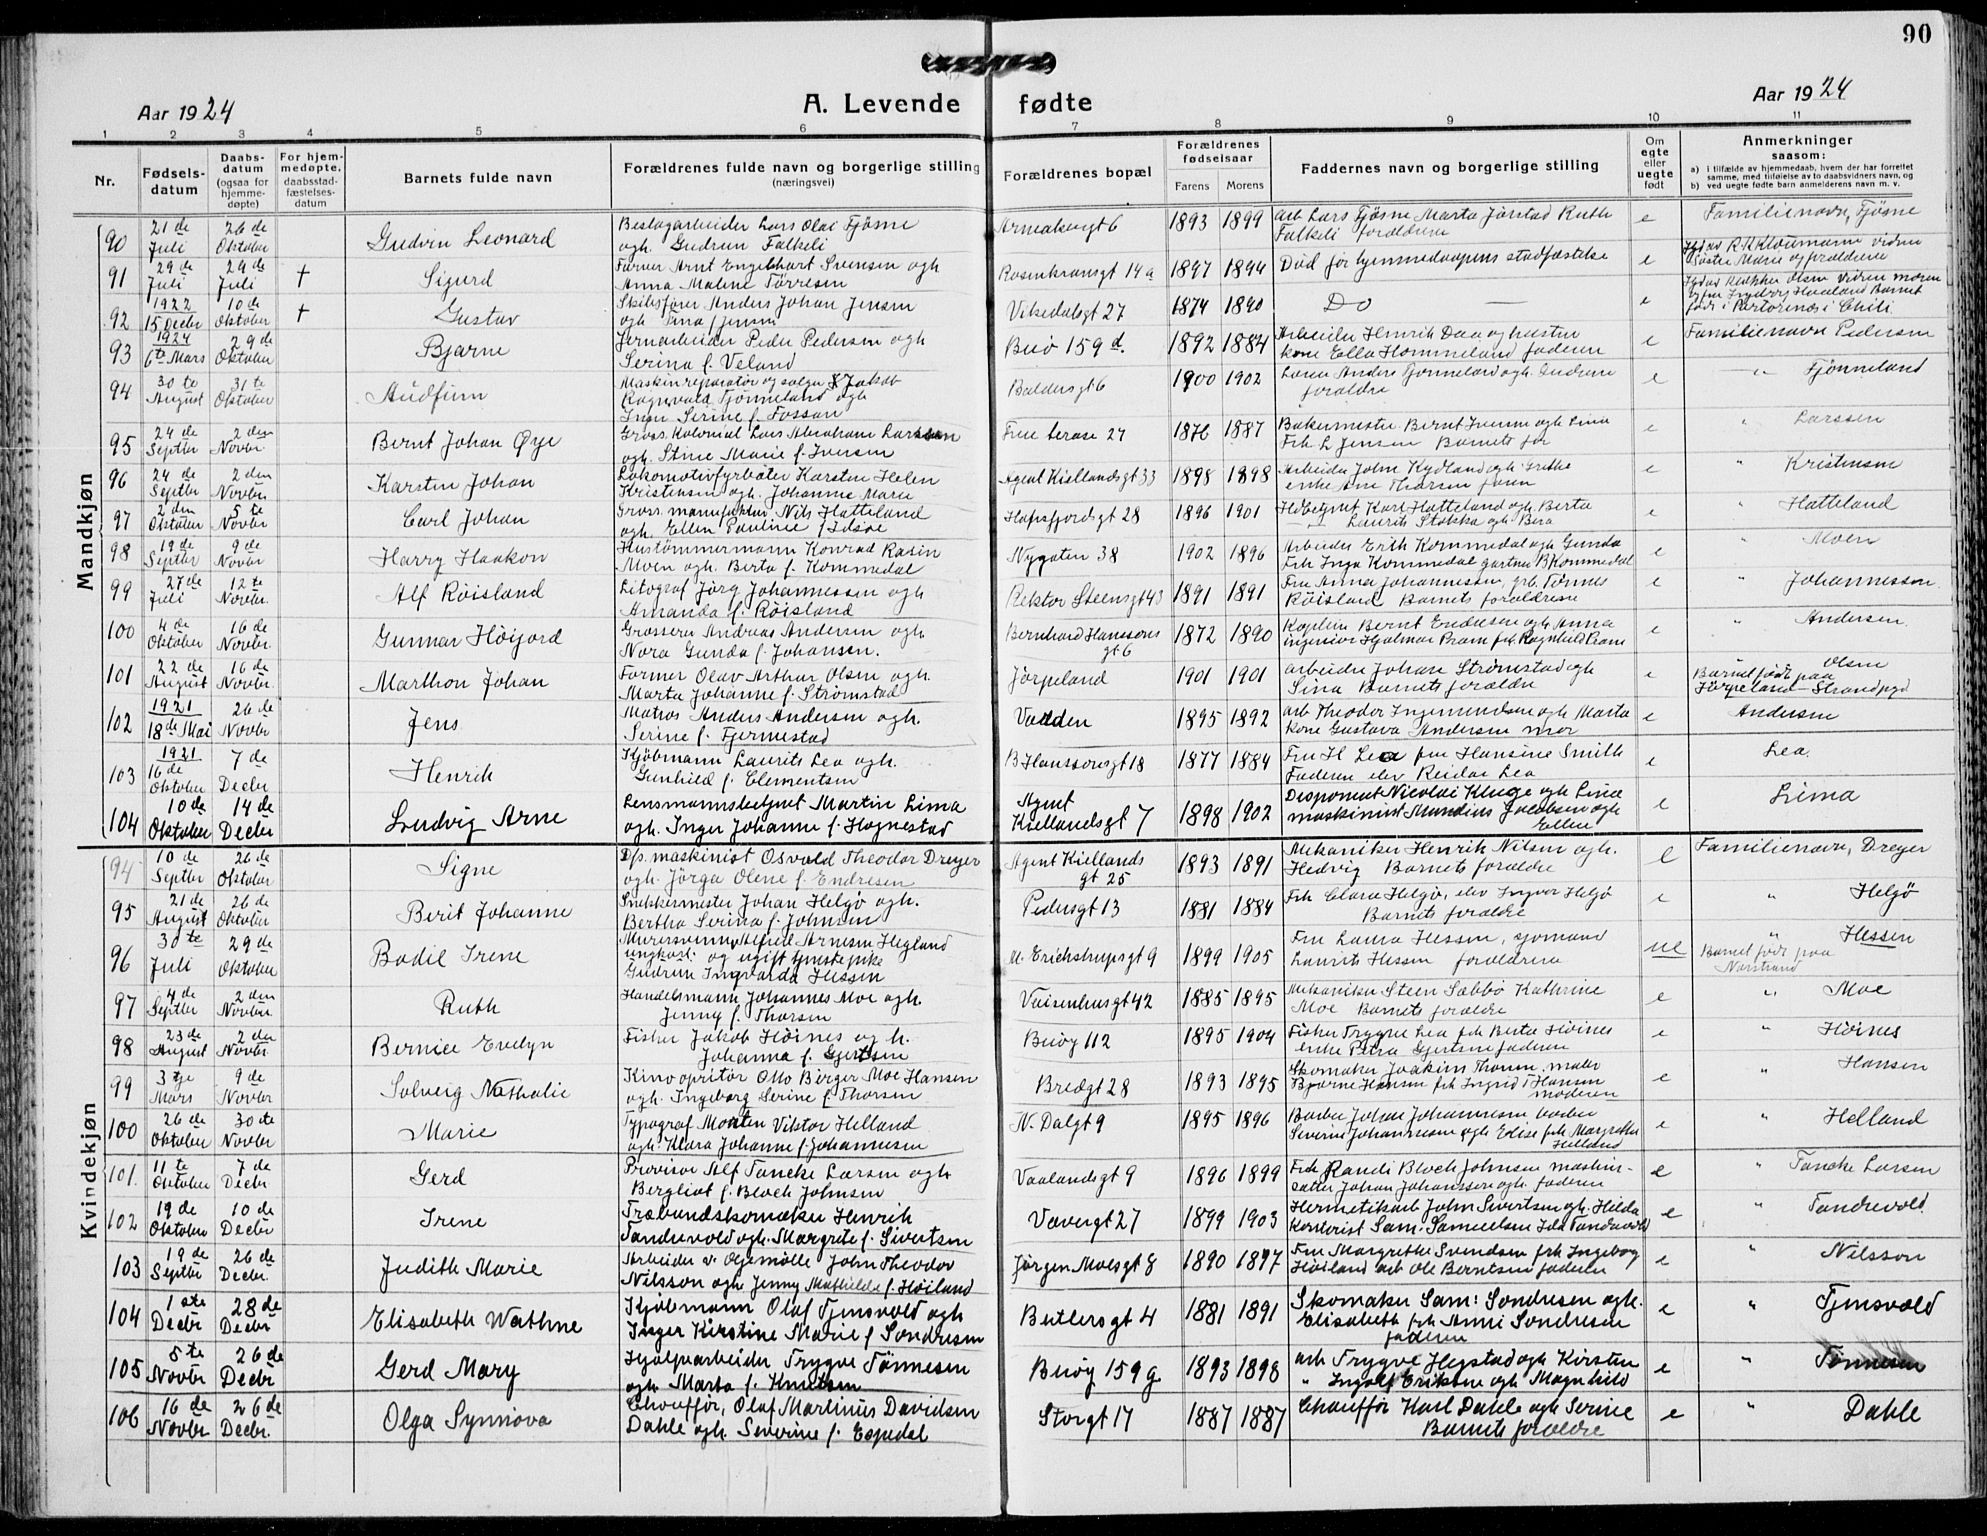 90
Aar 1924
A. Levende fødte
Aar 1924
1 2 3 4 5 6 7 8 9 10 11
Nr.
Fødsels-datum
Daabs-datum (ogsaa for hjemme-døpte)
For hjem-medøpte, daabsstad-fæstelses-datum
Barnets fulde navn
Forældrenes fulde navn og borgerlige stilling (næringsvei)
Forældrenes bopæl
Forældrenes fødselsaar
Farens Morens
Faddernes navn og borgerlige stilling
Om egte eller uegte født
Anmerkninger saasom:
a) i tilfælde av hjemmedaab, hvem der har forrettet samme, med tilføielse av to daabsvidners navn, og
b) ved uegte fødte barn anmelderens navn m. v.
Mandkjøn
90 21de Juli 26de Oktober Gudvin Leonard Beslagarbeider Lars Olai Tjøsne ogh. Gudrun Falkeli 1893 1899 arb Lars Tjøsne Marta Jørstad Ruth Falkeli forældrene e Familienavn, Tjøsne
91 29de Juli 29de Juli + Sigurd Former Arnt Engelhart Svensen ogh Anna Maline Tørresen Rosenkransgt 14a 1897 1894 Død før hjemmedaapens stadfæstelse e
92 1922 15 Decbr 10de Oktober + Gustav Skibsfører Anders Johan Jensen ogh Tina f Jensen Vikedalsgt 27 1874 1890 Do — e
93 1924 6te Mars 29de Oktober Bjarne Jernarbeider Peder Pedersen ogh Serina f. Veland Buø 159 d. 1892 1884 Arbeider Henrik Daa og hustru kone Ella Hommeland faderen e Familienavn Pedersen
94 30te August 31te Oktober Audfinn Maskinreparatør og selger Jakob Ragnvald Tjønneland ogh Inga Serine f. Fossan Baldersgt 6 1900 1902 e " Tjønneland
95 24de Septbr 2den Novbr Bernt Johan Øye Gross. Kolonial Lars Abraham Larssen ogh. Stine Marie f. Iversen Frue terasse 27 1876 1887 Bakermester Bernt Iversen ogh Lina Frk L Jensen Barnets før e " Larssen
96 24de Septbr 2den Novbr Karsten Johan Lokomotivfyrbøter Karsten Helen Kristensen ogh. Johanne Marie Agent Kiellandsgt 33 1898 1898 Arbeider John Kydland ogh Grethe enke Ane Thorsen faren e " Kristensen
97 2den Oktober 5te Novbr Carl Johan Gross. manufaktur Nils Hatteland ogh Ellen Pauline f Idsøe Hafrsfjordsgt 28 1896 1901 Karl Hatteland ogh Berta Laurits Stokka ogh Bera e " Hatteland
98 19de Septbr 9de Novbr Harry Haakon Hustømmermann Konrad Rasin Moen ogh. Berta f. Kommedal Nygaten 38 1902 1896 Arbeider Erik Kommedal ogh Gunda Frk Inga Kommedal gartner B Kommedal e " Moen
99 27de Juli 12te Novbr. Alf Røisland Litograf Jörg Johannessen ogh Amanda f. Røisland Rektor Steensgt 43 1891 1891 Fru Anna Johannessen, grb. Tønnes Røisland Barnets forældrene e " Johannessen
100 4de Oktober 16de Novbr. Gunnar Höijord Grosserer Andreas Andersen ogh Nora Gunda f. Johansen. Bernhard Hanssons gt 6 1872 1890 Kaptein Bernt Endresen ogh Anna ingeniør Hjalmar Pram frk Ragnhild Pram e " Andersen
101 22de August 16de Novbr. Marthon Johan Former Olav Arthur Olsen ogh Marta Johanne f. Strømstad Jørpeland 1901 1901 arbeider Johan Strømstad ogh Sina Barnets forældre e Olsen Barnet født paa Jörpeland - Strandpgd
102 1921 18de Mai 26de Novbr Jens Matros Anders Andersen ogh. Serine f. Fjermestad Vadden 1895 1892 arb Theodor Ingemundsen ogh Marta kone Gustava Andersen mor e Andersen
103 1921 16de Oktober 7de Decbr Henrik Kjøbmann Laurits Lea ogh. Gunhild f. Clementsen B Hanssonsgt 18 1877 1884 Fru H Lea fru Hansine Smith Faderen elev Reidar Lea e Lea.
104 10de Oktober 14de Decbr Ludvig Arne Lensmannsbetjent Martin Lima ogh. Inger Johanne f. Hognestad Agent Kiellandsgt 7 1898 1902 Disponent Nicolai Kluge ogh Lina maskinist Mandius Jacobsen ogh Ellen e Lima
Kvindekjøn
94 10de Septbr 26de Oktober Signe Dfs. maskinist Osvald Theodor Dreyer ogh. Jörga Olene f. Endresen Agent Kiellands gt 25 1893 1891 Mekaniker Henrik Nilsen ogh. Hedvig Barnets forældre e Familienavn, Dreyer
95 21de August 26de Oktober Berit Johanne Snekkermester Johan Helgø ogh. Bertha Serina f. Johnsen Pedersgt 13 1881 1884 Frk Clara Helgø, elev Ingver Helgø Barnets forældre e " Helgö
96 30te Juli 29de Oktober Bodil Irene Murersvenn Alfred Arnesen Hegland ungkarl og ugift tjenestepike Gudrun Ingvarda Hessen M. Erichstrupsgt 9 1899 1905 Fru Laura Hessen, sjømand Laurits Hessen forældrene ue " Hessen Barnet født paa Narstrand
97 4de Septbr 2den Novbr Ruth Handelsmann Johannes Moe ogh. Jenny f. Thorsen Vaisenhusgt 42 1885 1895 Mekaniker Steen Sæbbö Kathrine Moe Barnets forældre e " Moe
98 23de August 2den Novbr. Bernice Evelyn Fisker Jakob Höines og h. Johanna f. Gjertsen Buöy 112 1895 1904 Fisker Trygve Lea frk Berta Höines enke Petra Gjertsen faderen e " Höines
99 3tje Mars 9de Novbr Solveig Nathalie Kinooperatör Otto Birger Moe Hansen ogh. Ingeborg Serine f. Thorsen Bredgt 28 1893 1895 Skomaker Joakim Thorsen, maler Bjarne Hansen frk Ingrid T Hansen moderen e " Hansen
100 26de Oktober 30te Novbr Marie Typograf Morten Viktor Helland ogh. Klara Johanne f. Johannesen N. Dalgt 9 1895 1896 Barber Johan Johannesen barber Severin Johannesen ogh Elise frk Margrethe Helland e " Helland
101 11te Oktober 7de Decbr Gerd Provisor Alf Tancke Larsen ogh Bergliot f. Bloch Johnsen Vaalandsgt 9 1896 1899 Frk Randi Bloch Johnsen maskin-sætter Johan Johanssen ogh faderen e " Tancke Larsen
102 19de Oktober 10de Decbr Irene Træbundskomaker Henrik Tandrevold ogh. Margrete f. Sivertsen Vævergt 27 1899 1903 Hermetikarb John Sivertsen ogh. Hilda Kontorist Sam: Samuelsen Ida Tandrevold e " Tandrevold
103 19de Septbr 26de Decbr. Judith Marie Arbeider v. Oljemølle John Theodor Nilsson ogh Jenny Mathilde f. Höiland Jørgen Moesgt 8 1890 1897 Fru Margrethe Svendsen frk Ingeborg Höiland arb Ole Berntsen faderen e " Nilsson
104 1ste Decbr 28de Decbr Elisabeth Wathne Kjöbmann Olaf Tjensvold ogh Inger Kirstine Marie f Sondresen Butlersgt 4 1881 1891 Skomaker Sam: Sondresen ogh. Elisabeth frk Anni Sondresen faderen e " Tjensvold
105 5te Novbr 26de Decbr Gerd Mary Hjælpearbeider Trygve Tönnesen ogh. Marta f. Knutsen Buöy 159 g 1893 1898 arb Trygve Hegstad ogh Kirsten " Ingolf Eriksen ogh Magnhild e " Tönnesen
106 16de Novbr 26de Decbr. Olga Synnöva Chauffør, Olaf Martinius Davidsen Dahle ogh. Severine f. Espedal Storgt 17 1887 1887 Chauffør Karl Dahle ogh Serine Barnets forældre e " Dahle